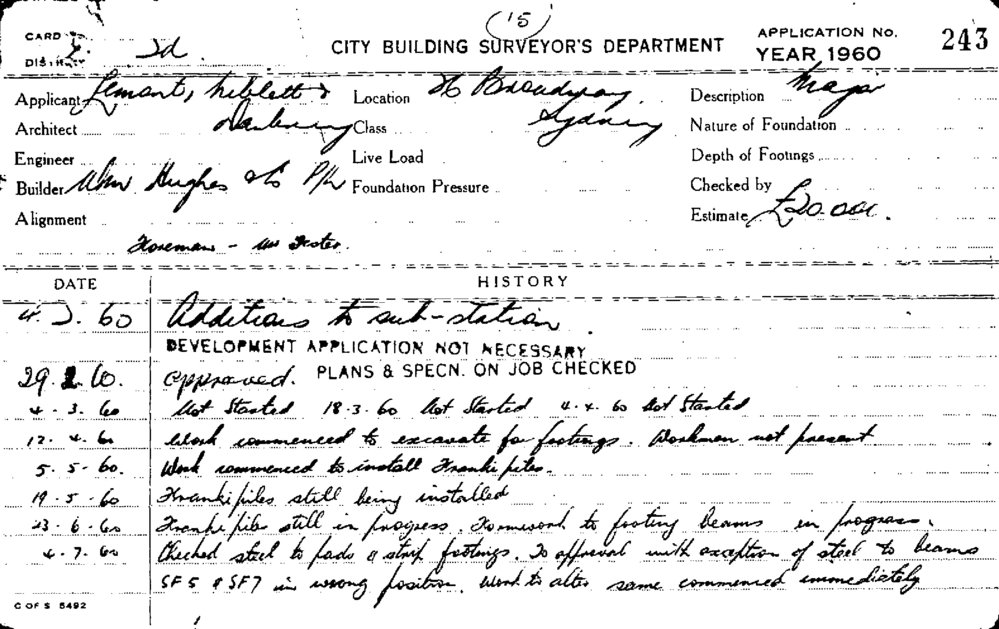 (15)
CARD
DISTRICT 2d. CITY BUILDING SURVEYOR'S DEPARTMENT APPLICATION No. 243
YEAR 1960
Applicant Lemont, Niblett & Location Broadway Description Major
Architect Class Sydney Nature of Foundation
Engineer Live Load Depth of Footings
Builder Wm Hughes & Co P/L Foundation Pressure Checked by
Alignment Estimate £20.000.
Foreman - Mr Foster.
DATE HISTORY
4. 2. 60 Additions to sub-station.
DEVELOPMENT APPLICATION NOT NECESSARY
29. 2. 60. approved. PLANS & SPECN. ON JOB CHECKED
4. 3. 60 Not Started 18.3.60 Not Started 4.4.60 Not Started
12. 4. 60 Work commenced to excavate for footings. Workmen not present
5. 5. 60. Work commenced to install Franki piles.
19. 5. 60 Franki piles still being installed
23. 6. 60 Franki piles still in progress. Formwork to footing beams in progress.
4. 7. 60 Checked steel to pads & strip footings. To approval with exception of steel to beams
SF5 & SF7 in wrong position. Work to alter same commenced immediately
C OF S 5492